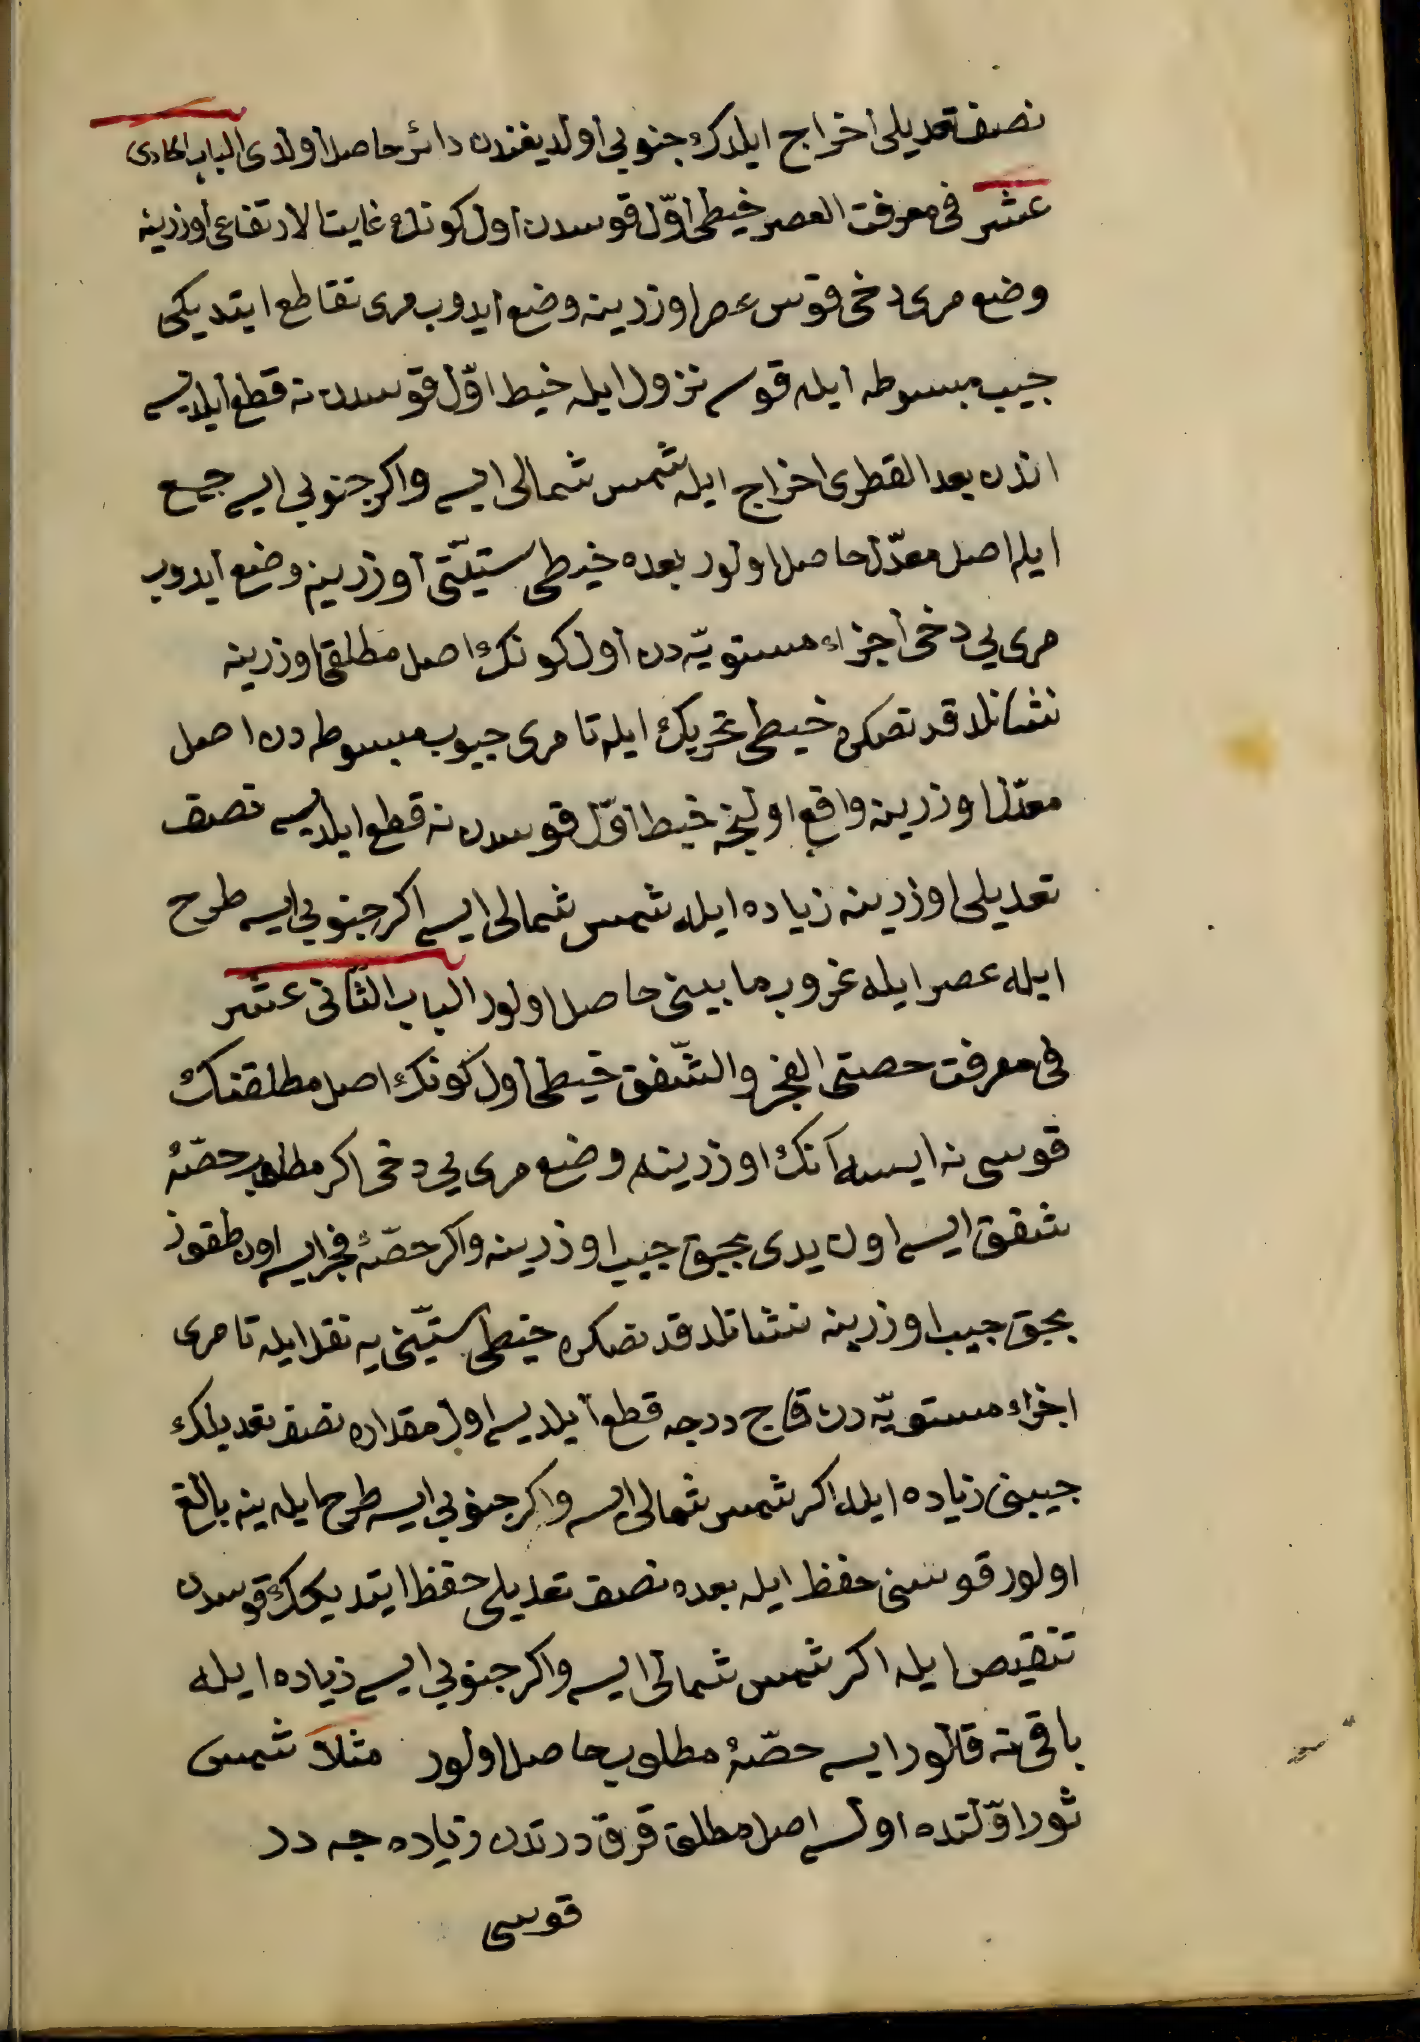 نصف تعديلى اخراج ايلدك جنوبى اولديغندن دائر حاصل اولدى الباب الحادى
عشر فى معرفت العصر خيطى اوّل قوسدن اول كونك غايت الارتفاعى اوزرينه
وضع مرى دخى قوس عصر اوزرينه وضع ايدوب مرى تقاطع ايتديكى
جيب مبسوطه ايله قوسه نزول ايله خيط اوّل قوسدن نه قطع ايلديسه
اندن بعد القطرى اخراج ايله شمس شمالى ايسه واكر جنوبى ايسه جمع
ايله اصل معدّل حاصل اولور بعده خيطى ستيّنى اوزرينه وضع ايدوب
مرى يى دخى اجزاء مستويّه دن اول كونك اصل مطلقى اوزرينه
نشانلدقدنصكره خيطى تحريك ايله تا مرى جيوب مبسوطه دن اصل
معدّل اوزرينه واقع اولنجه خيط اوّل قوسدن نه قطع ايلديسه نصف
تعديلى اوزرينه زياده ايله شمس شمالى ايسه اكر جنوبى ايسه طرح
ايله عصر ايله غروب مابينى حاصل اولور الباب الثّانى عشر
فى معرفت حصتى الفجر والشّفق خيطى اول كونك اصل مطلقنك
قوسى نه ايسه آنك اوزرينه وضع مرى يى دخى اكر مطلوب حصّهٔ
شفق ايسه اون يدى بچق جيب اوزرينه واكر حصّهٔ فجر ايسه اون طقوز
بچق جيب اوزرينه نشانلدقدنصكره خيطى ستيّنى يه نقل ايله تا مرى
اجزاء مستويّه دن قاچ درجه قطع ايلديسه اول مقداره نصف تعديلك
جيبنى زياده ايله اكر شمس شمالى ايسه واكر جنوبى ايسه طرح ايله ينه بالغ
اولور قوسنى حفظ ايله بعده نصف تعديلى حفظ ايتديكك قوسدن
تنقيص ايله اكر شمس شمالى ايسه واكر جنوبى ايسه زياده ايله
باقى نه قالور ايسه حصّهٔ مطلوب حاصل اولور مثلا شمس
ثور اوّلنده اولسه اصل مطلق قرق درتدن زياده جه در
قوسى